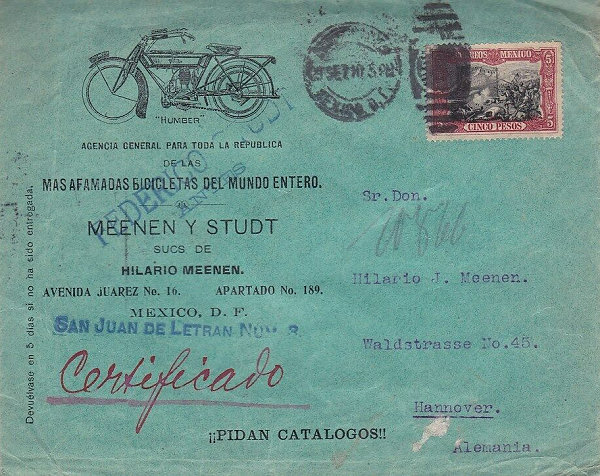 "HUMBER"
AGENCIA GENERAL PARA TODA LA REPUBLICA
DE LAS
MAS AFAMADAS BICICLETAS DEL MUNDO ENTERO.
FEDERICO STUDT
ANTES
MEENEN Y STUDT
SUCS DE
HILARIO MEENEN.
AVENIDA JUAREZ No. 16. APARTADO No. 189.
MEXICO, D. F.
SAN JUAN DE LETRAN NUM. 3
Certificado
¡¡PIDAN CATALOGOS!!
Devuélvase en 5 días si no ha sido entregada.
MEXICO D.F.
CORREOS MEXICO
5 5
CINCO PESOS
Sr. Don.
Hilario J. Meenen.
Waldstrasse No. 45.
Hannover.
Alemania.